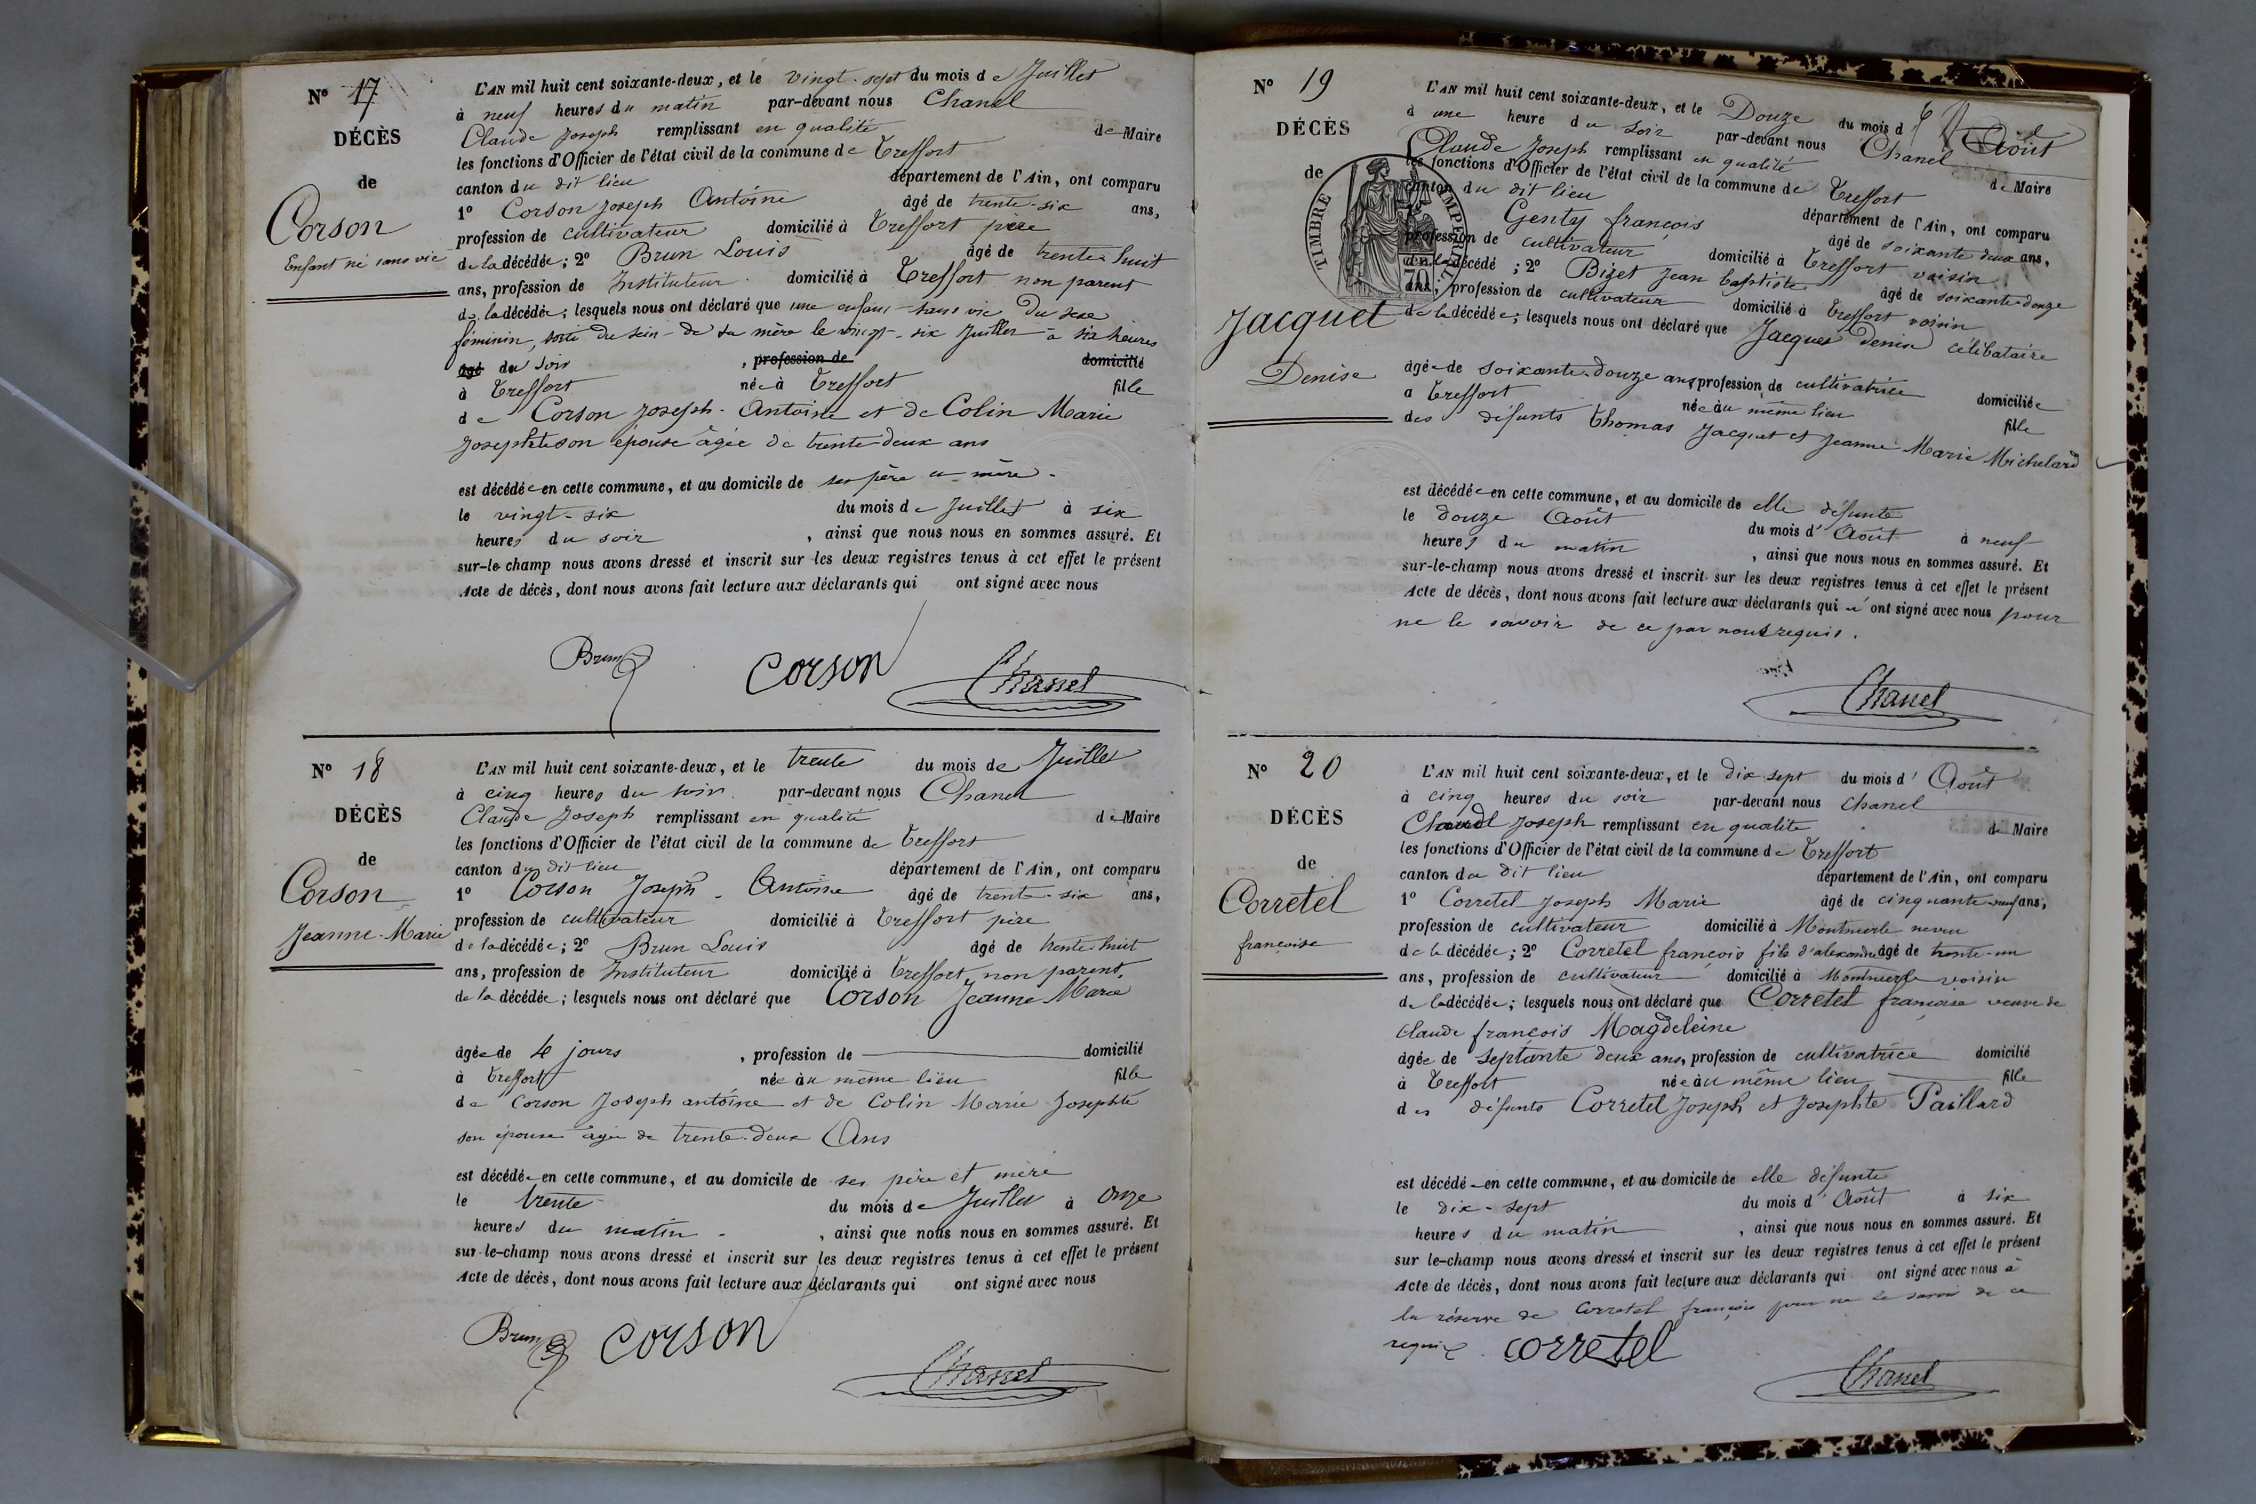 N° 17
DÉCÈS
de
Corson
Enfant né sans vie
L'AN mil huit cent soixante-deux, et le vingt-sept du mois de Juillet
à neuf heures du matin par-devant nous Chanel
Claude Joseph remplissant en qualité de Maire
les fonctions d'Officier de l'état civil de la commune de Treffort
canton du dit lieu département de l'Ain, ont comparu
1° Corson Joseph Antoine âgé de trente-six ans,
profession de cultivateur domicilié à Treffort père
de la décédée; 2° Brun Louis âgé de trente-huit
ans, profession de Instituteur domicilié à Treffort non parent
de la décédée; lesquels nous ont déclaré que une enfant sans vie Du sexe
féminin, sortie du sein de sa mère le vingt-six Juillet à six heures
âgé du soir , profession de domicilié
à Treffort née à Treffort fille
de Corson Joseph-Antoine et de Colin Marie
Josephte son épouse âgée de trente-deux ans
est décédée en cette commune, et au domicile de ses père et mère
le vingt-six du mois de Juillet à six
heures du soir , ainsi que nous nous en sommes assuré. Et
sur-le-champ nous avons dressé et inscrit sur les deux registres tenus à cet effet le présent
Acte de décès, dont nous avons fait lecture aux déclarants qui ont signé avec nous
Brun Corson Chanel
N° 18
DÉCÈS
de
Corson
Jeanne-Marie
L'AN mil huit cent soixante-deux, et le trente du mois de Juillet
à cinq heures du soir par-devant nous Chanel
Claude Joseph remplissant en qualité de Maire
les fonctions d'Officier de l'état civil de la commune de Treffort
canton du dit lieu département de l'Ain, ont comparu
1° Corson Joseph-Antoine âgé de trente-six ans,
profession de cultivateur domicilié à Treffort père
de la décédée; 2° Brun Louis âgé de trente-huit
ans, profession de Instituteur domicilié à Treffort non parent
de la décédée; lesquels nous ont déclaré que Corson Jeanne Marie
âgée de 4 jours , profession de domicilié
à Treffort née au même lieu fille
de Corson Joseph antoine et de Colin Marie Josephte
son épouse âgée de trente-deux Ans
est décédée en cette commune, et au domicile de ses père et mère
le trente du mois de Juillet à Onze
heures du matin , ainsi que nous nous en sommes assuré. Et
sur-le-champ nous avons dressé et inscrit sur les deux registres tenus à cet effet le présent
Acte de décès, dont nous avons fait lecture aux déclarants qui ont signé avec nous
Brun Corson Chanel
N° 19
DÉCÈS
de
Jacquet
Denise
TIMBRE IMPERIAL
L'AN mil huit cent soixante-deux, et le Douze du mois d'Août
à une heure du soir par-devant nous Chanel
Claude Joseph remplissant en qualité de Maire
les fonctions d'Officier de l'état civil de la commune de Treffort
canton du dit lieu département de l'Ain, ont comparu
Genty françois âgé de soixante deux ans,
profession de cultivateur domicilié à Treffort voisin
de la décédé; 2° Bizet Jean baptiste âgé de soixante-douze
ans, profession de cultivateur domicilié à Treffort voisin
de la décédée; lesquels nous ont déclaré que Jacquet Denise célibataire
âgée de soixante-douze ans, profession de cultivatrice domiciliée
à Treffort née au même lieu fille
des défunts Thomas Jacquet et Jeanne Marie Michelard
est décédée en cette commune, et au domicile de elle défunte
le douze Août du mois d'Août à neuf
heures du matin , ainsi que nous nous en sommes assuré. Et
sur-le-champ nous avons dressé et inscrit sur les deux registres tenus à cet effet le présent
Acte de décès, dont nous avons fait lecture aux déclarants qui n'ont signé avec nous pour
ne le savoir de ce par nous requis.
Chanel
N° 20
DÉCÈS
de
Corretel
françoise
L'AN mil huit cent soixante-deux, et le dix sept du mois d'Août
à cinq heures du soir par-devant nous Chanel
Joseph remplissant en qualité de Maire
les fonctions d'Officier de l'état civil de la commune de Treffort
canton du dit lieu département de l'Ain, ont comparu
1° Corretel Joseph Marie âgé de cinquante-neuf ans,
profession de cultivateur domicilié à Montmerle neveu
de la décédée; 2° Corretel françois fils d'alexandre âgé de trente-un
ans, profession de cultivateur domicilié à Montmerle voisin
de la décédée; lesquels nous ont déclaré que Corretel françoise veuve de
Claude françois Magdeleine
âgée de septante deux ans, profession de cultivatrice domicilié
à Treffort née au même lieu fille
des défunts Corretel Joseph et Josephte Paillard
est décédée en cette commune, et au domicile de elle défunte
le dix-sept du mois d'Août à six
heures du matin , ainsi que nous nous en sommes assuré. Et
sur le-champ nous avons dressé et inscrit sur les deux registres tenus à cet effet le présent
Acte de décès, dont nous avons fait lecture aux déclarants qui ont signé avec nous à
la réserve de Corretel françois pour ne le savoir de ce
requis. Corretel Chanel